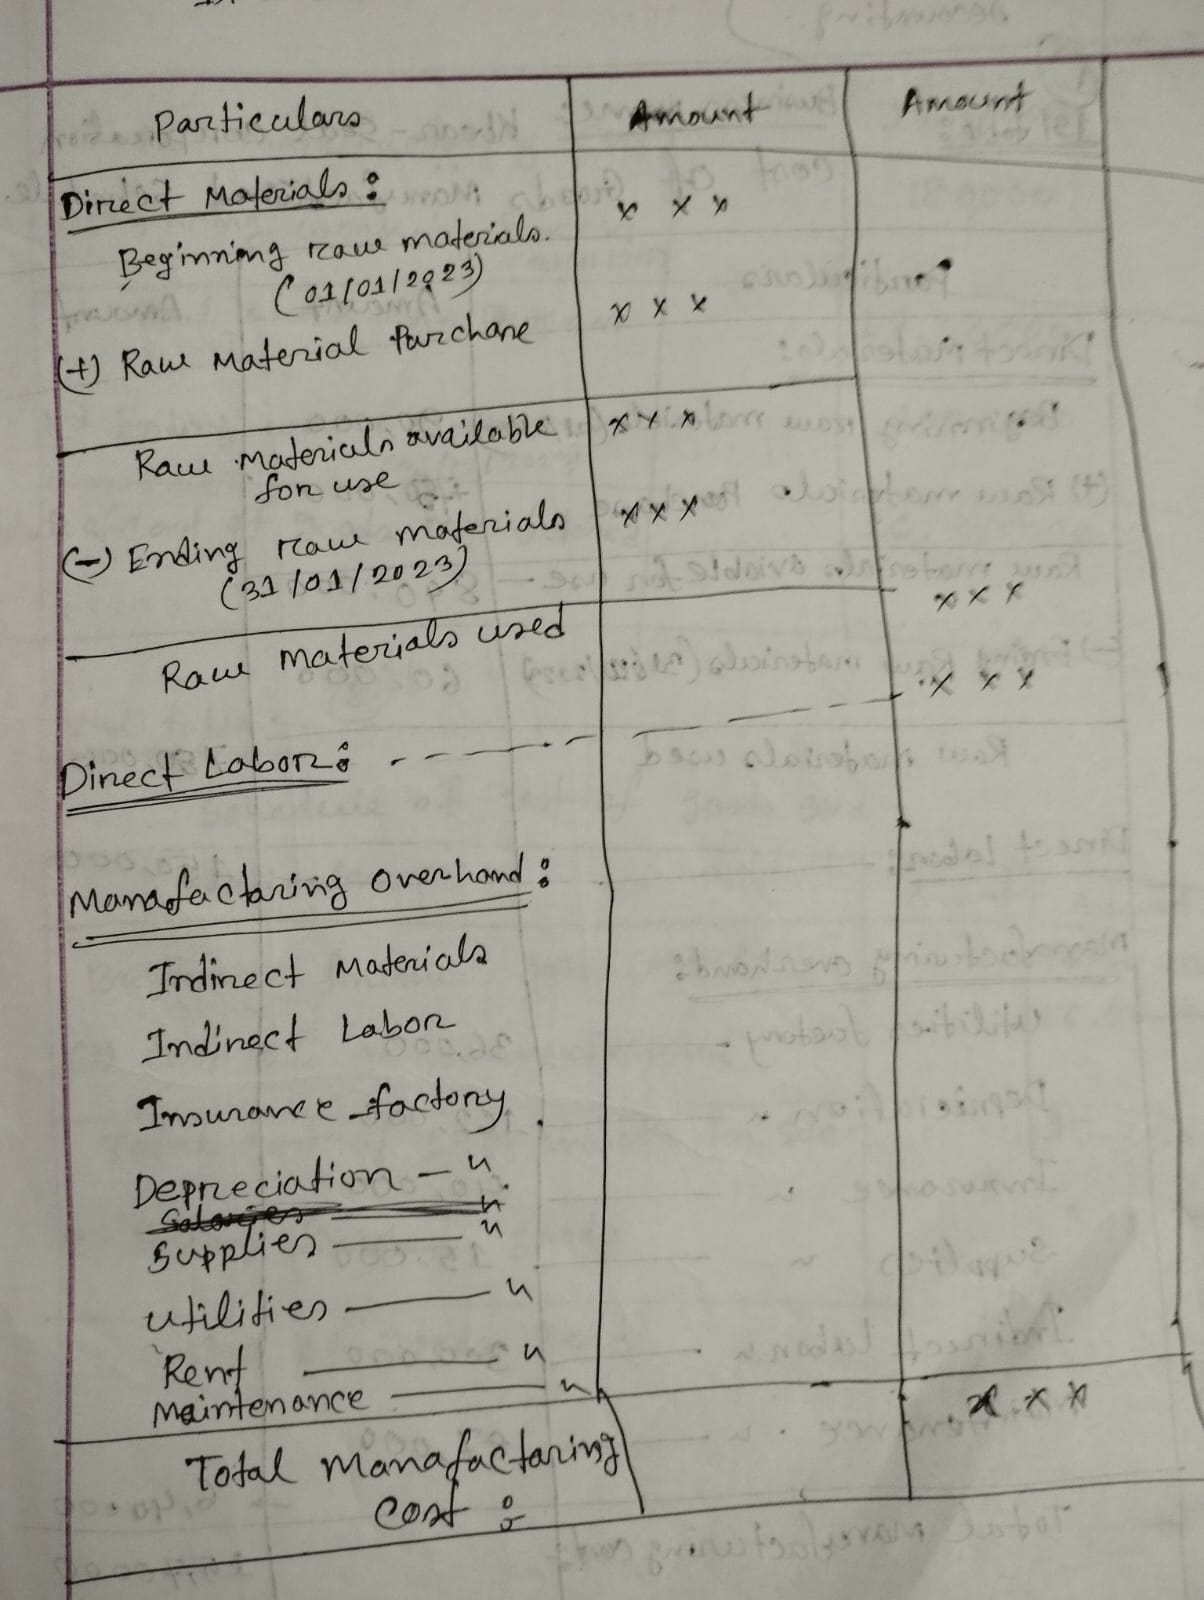 Particulars Amount Amount
Direct Materials:
Beginning raw materials. x x x
(01/01/2023)
(+) Raw Material Purchase x x x
Raw Materials available x x x
for use
(-) Ending raw materials x x x
(31/01/2023)
Raw Materials used x x x
Direct Labor: x x x
Manafactaring overhand:
Indirect Materials
Indirect Labor
Insurance factory.
Depreciation - "
Salaries "
Supplies — "
Utilities — "
Rent — "
Maintenance — "
Total Manafactaring x x x
Cost: